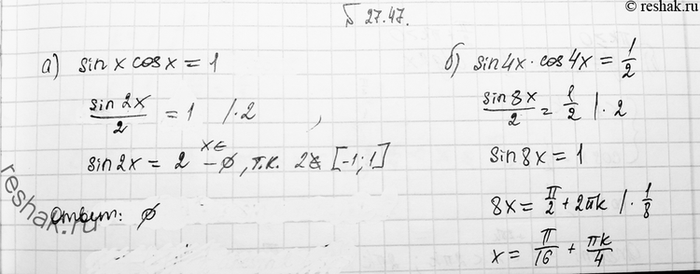 © reshak.ru
Б 27.47.
а) sin x cos x = 1
sin 2x / 2 = 1 | · 2 ,
sin 2x = 2 – x ∈ ∅, т.к. 2 ∉ [-1; 1]
Ответ: ∅
б) sin 4x · cos 4x = 1/2
sin 8x / 2 = 1/2 | · 2
sin 8x = 1
8x = π/2 + 2πk | · 1/8
x = π/16 + πk/4
reshak.ru